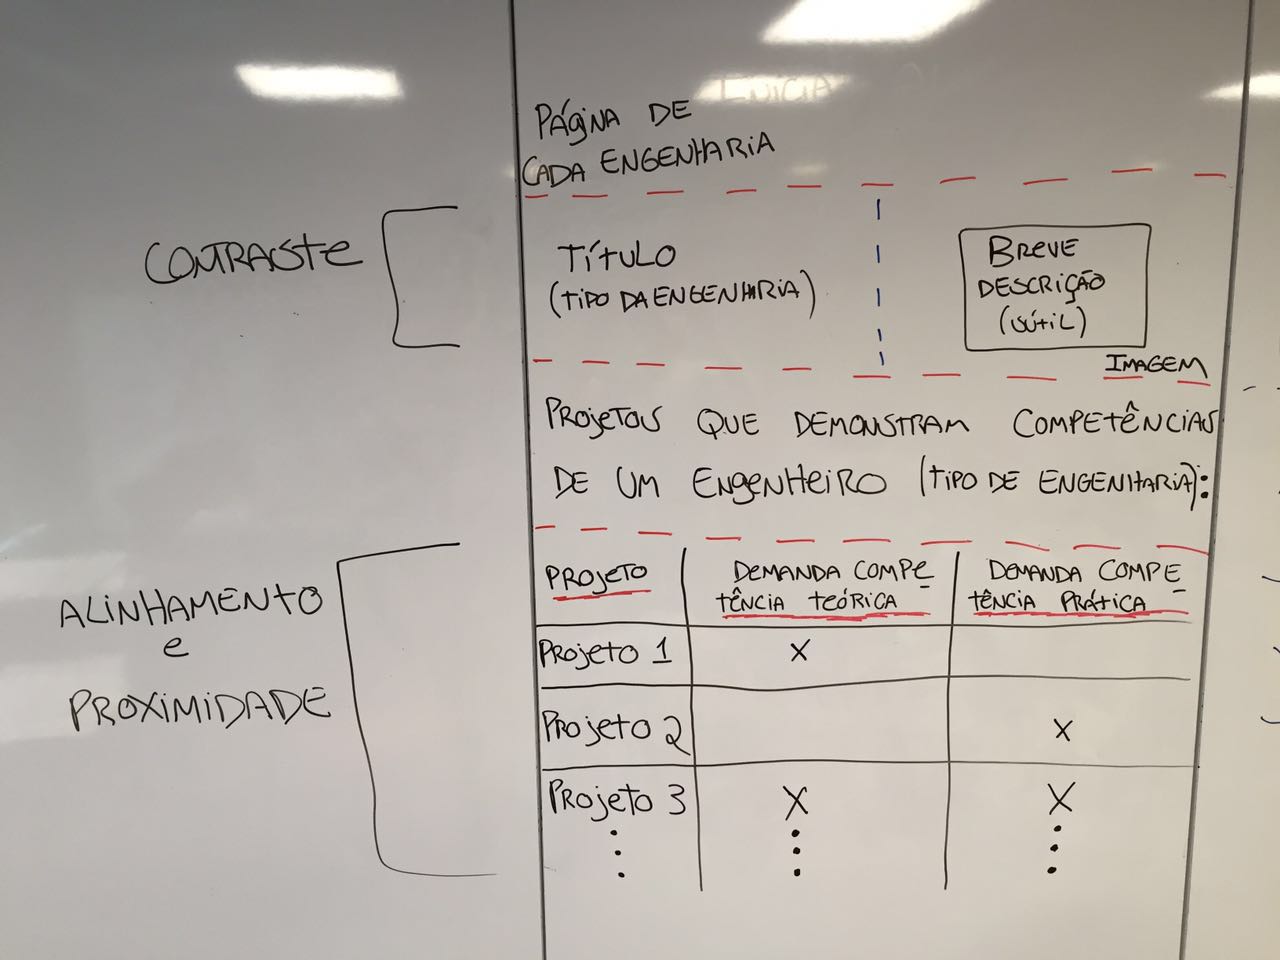 INICIA
PÁGINA DE
CADA ENGENHARIA
CONTRASTE
TÍTULO
(TIPO DA ENGENHARIA)
BREVE
DESCRIÇÃO
(ÚTIL)
IMAGEM
PROJETOS QUE DEMONSTRAM COMPETÊNCIAS
DE UM ENGENHEIRO (TIPO DE ENGENHARIA):
ALINHAMENTO
e
PROXIMIDADE
PROJETO DEMANDA COMPE DEMANDA COMPE
TÊNCIA TEÓRICA TÊNCIA PRÁTICA
PROJETO 1 X
PROJETO 2 X
PROJETO 3 X X